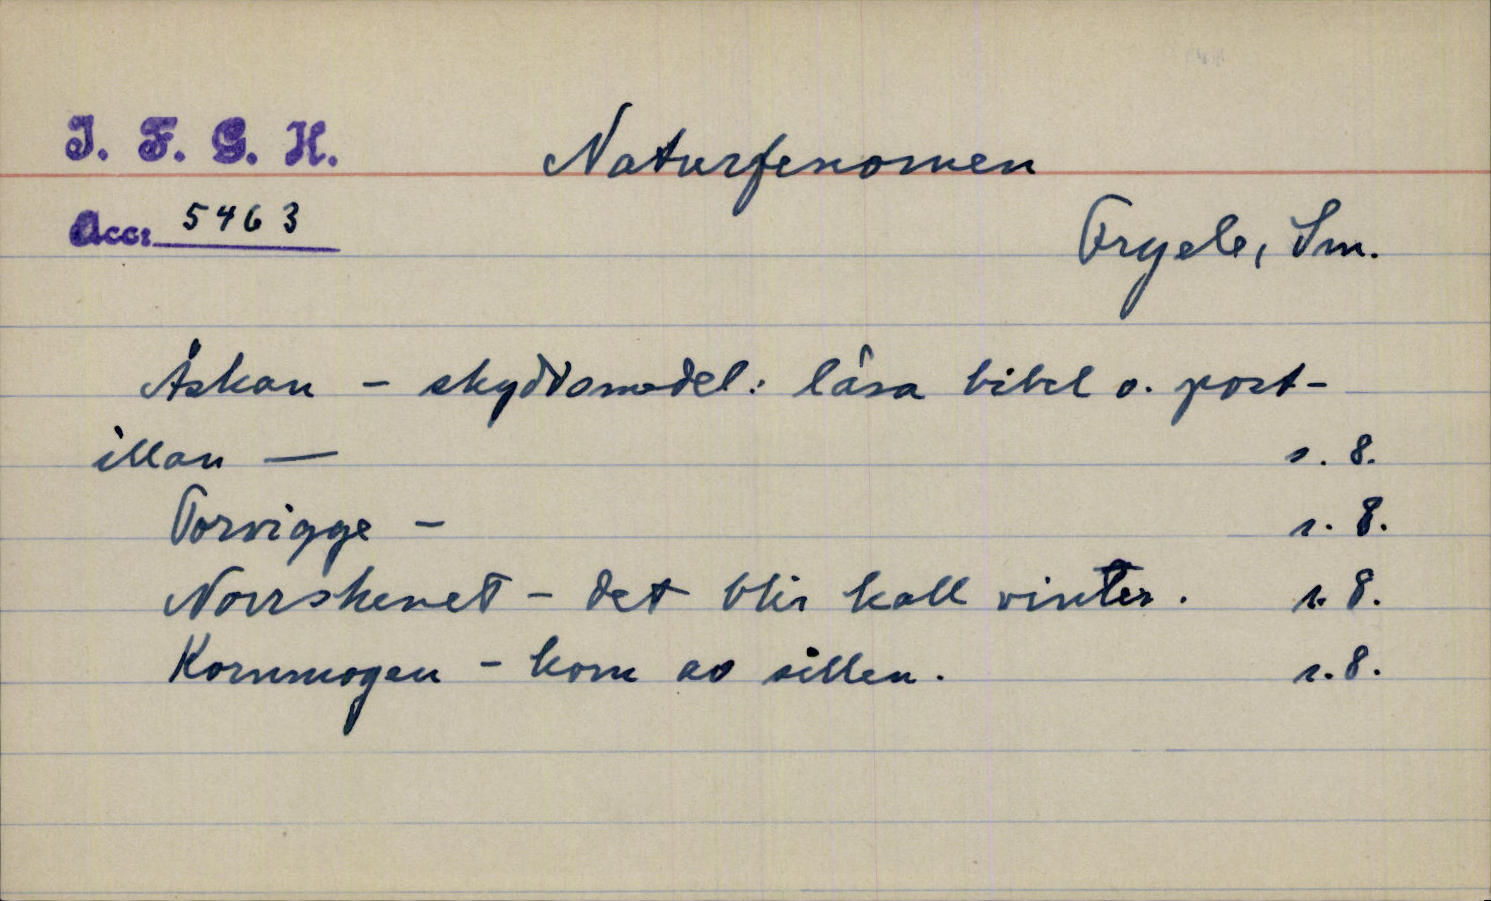 I. F. G. H.
Naturfenomen
Acc: 5463
Fryele, Sm.
Åskan - skyddsmedel: läsa bibel o. post-
illan — s. 8.
Torvigge - s. 8.
Norrskenet - det blir kall vinter. s. 8.
Kornmogen - kom av sillen. s. 8.